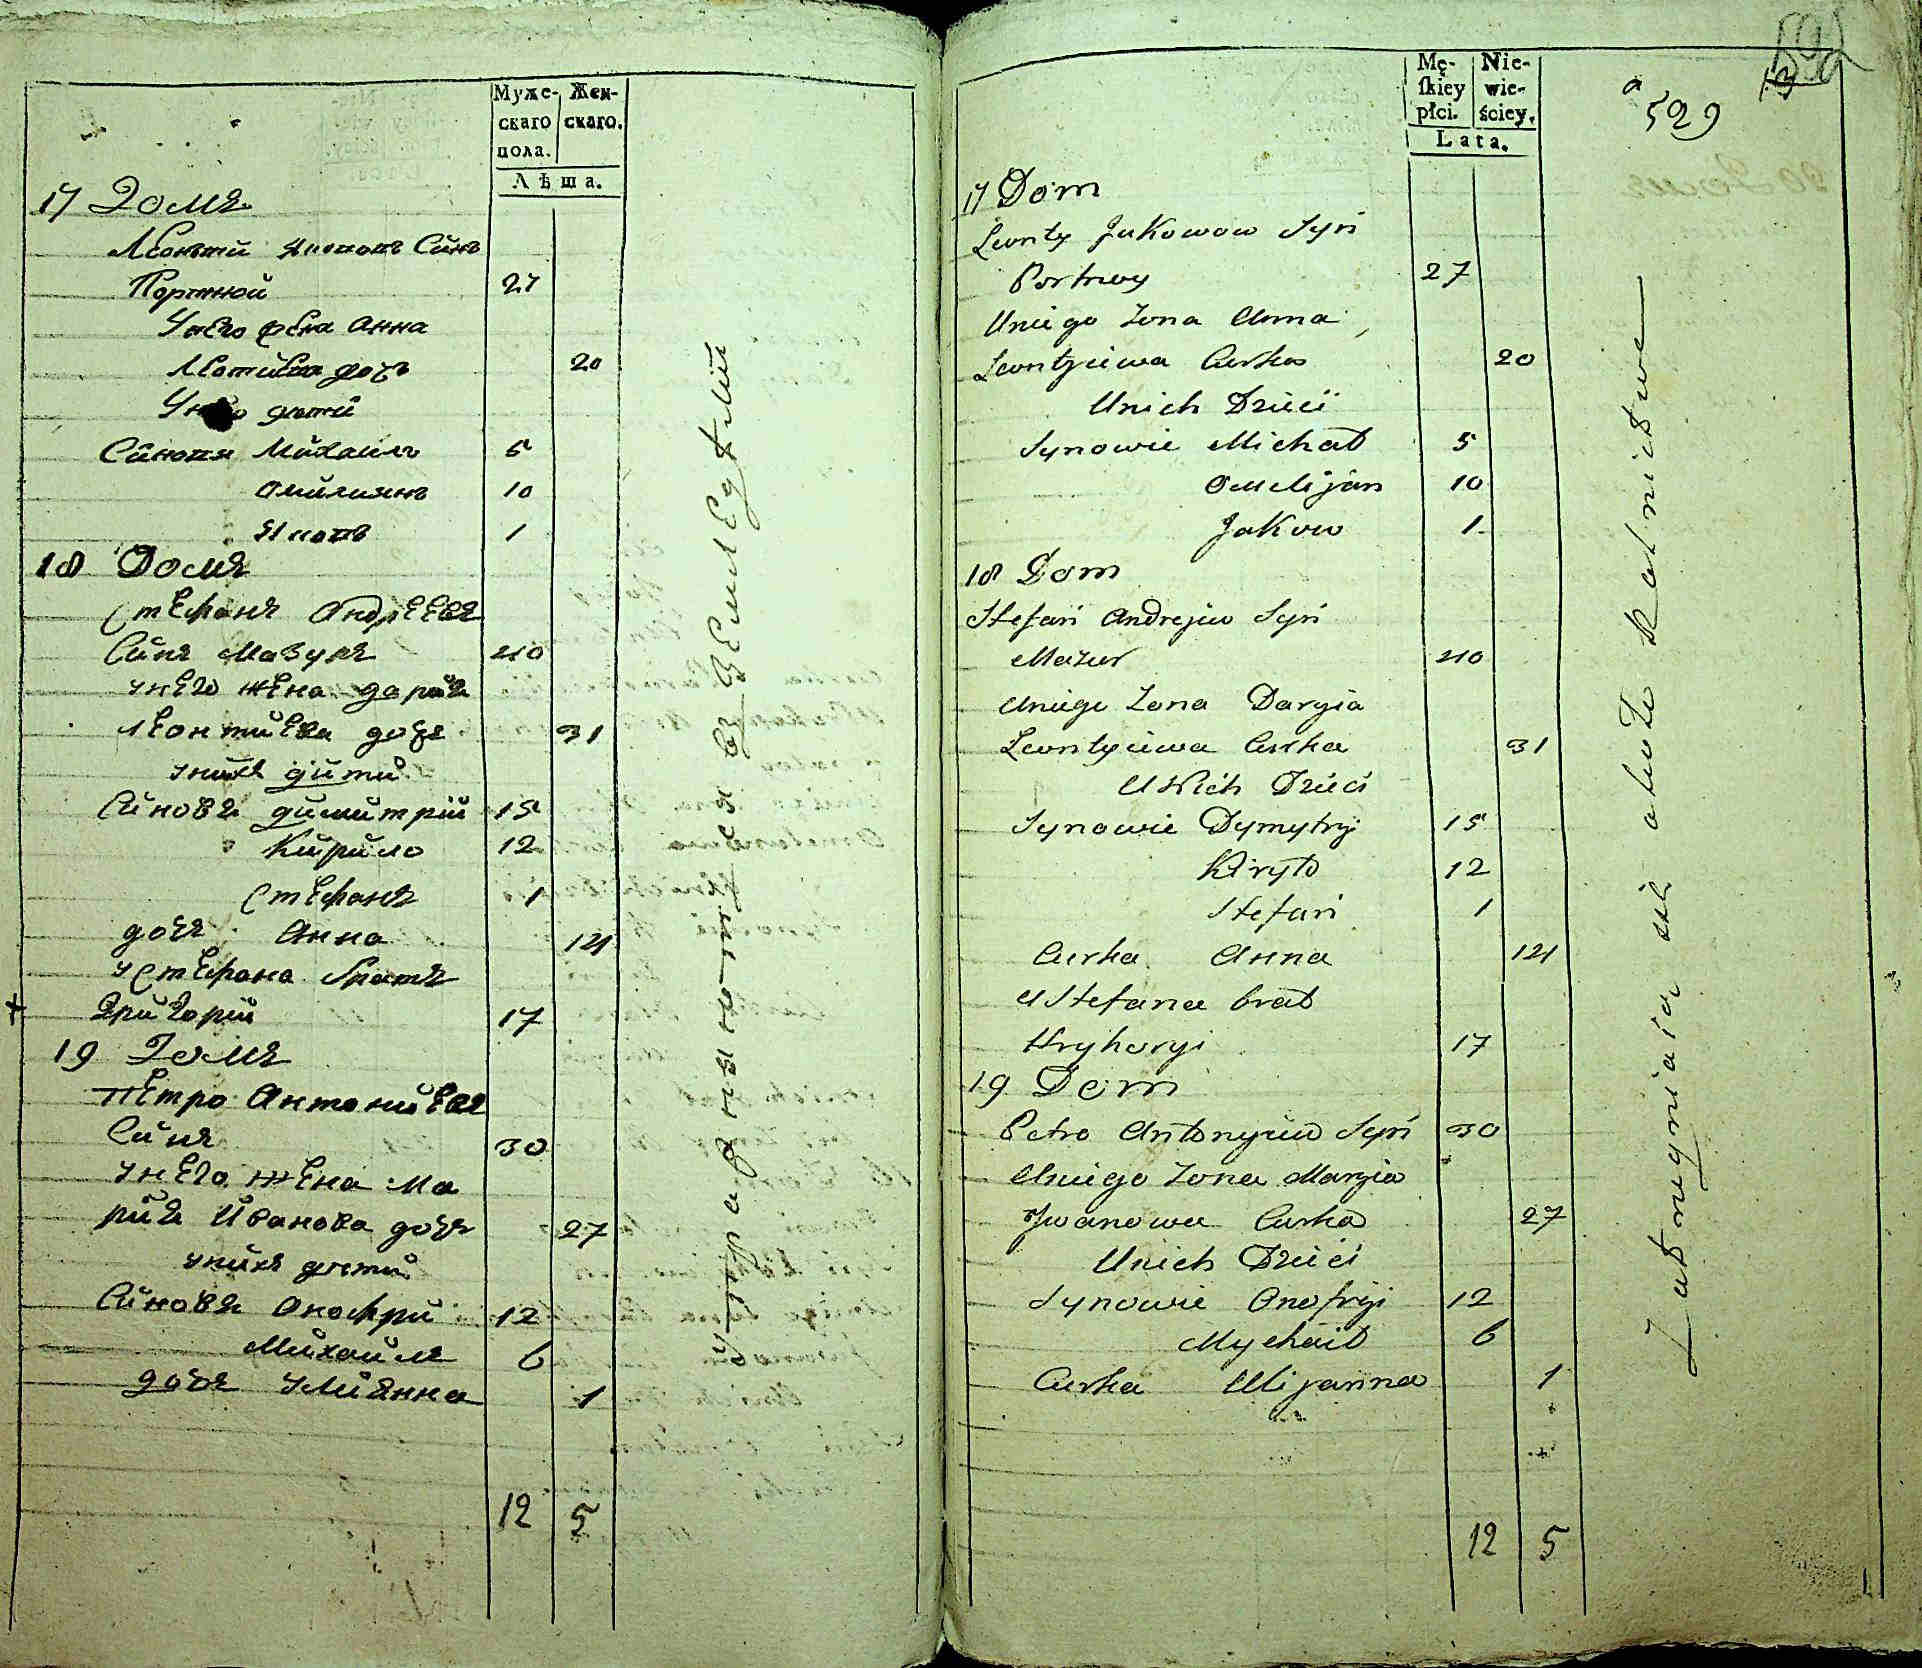 Муже-
скаго
пола.
Жен-
скаго.
Лѣта.
17 Домъ
Леонтiй Якововъ Сынъ
Портной 27
Унего жена Анна
Леонтиева дочъ 20
Унего дети
Синовя Михаилъ 5
Омилиянъ 10
Яковъ 1
18 Домъ
Стефанъ Андреевъ
Синъ Мазуръ 40
унего жена Дария
Леонтиева дочъ 31
унихъ дити
Синовя Димитрiй 15
Кирило 12
Стефанъ 1
дочъ Анна 14
у Стефана братъ
Григорiй 17
19 Домъ
Петро Антониевъ
Синъ 30
унего жена Ма
рия Иванова дочъ 27
унихъ дети
Синовя Онофри 12
Михаилъ 6
дочъ Улиянна 1
12 5
упражняются въ земледелiи
Mę-
skiey
płci.
Nie-
wie-
ściey.
Lata.
529
17 Dom
Lewnty Jakowow Syn
Portnoy 27
Uniego Zona Anna
Lewntyiewa Curka 20
Unich Dzieci
Synowie Michał 5
Omelijan 10
Jakow 1
18 Dom
Stefan Andrejew Syn
Mazur 40
Uniego Zona Daryia
Lewntyiewa Curka 31
Unich Dzieci
Synowie Dymytry 15
Kiryło 12
Stefan 1
Curka Anna 14
U Stefana brat
Hryhoryi 17
19 Dom
Petro Antonyiew Syn 30
Uniego Zona Maryia
Jwanowa Curka 27
Unich Dzieci
Synowie Onofryi 12
Mychaił 6
Curka Ulijanna 1
12 5
Zatrudniaią się około Rolnictwa